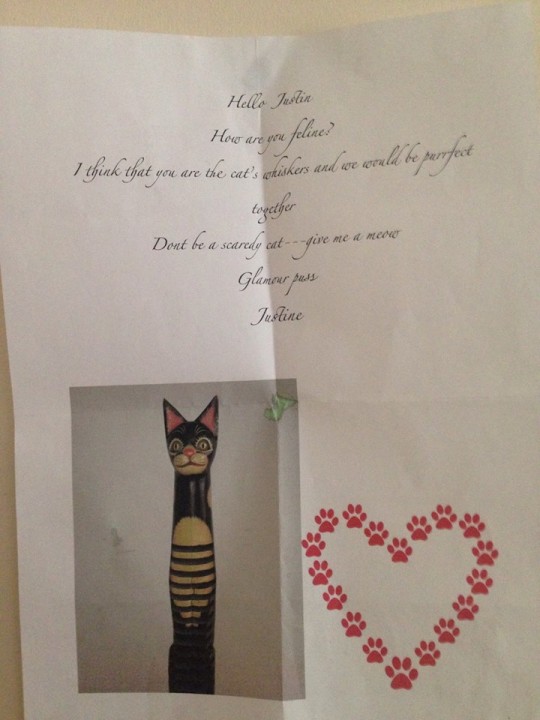 Hello Justin
How are you feline?
I think that you are the cat's whiskers and we would be purrfect
together
Dont be a scaredy cat---give me a meow
Glamour puss
Justine